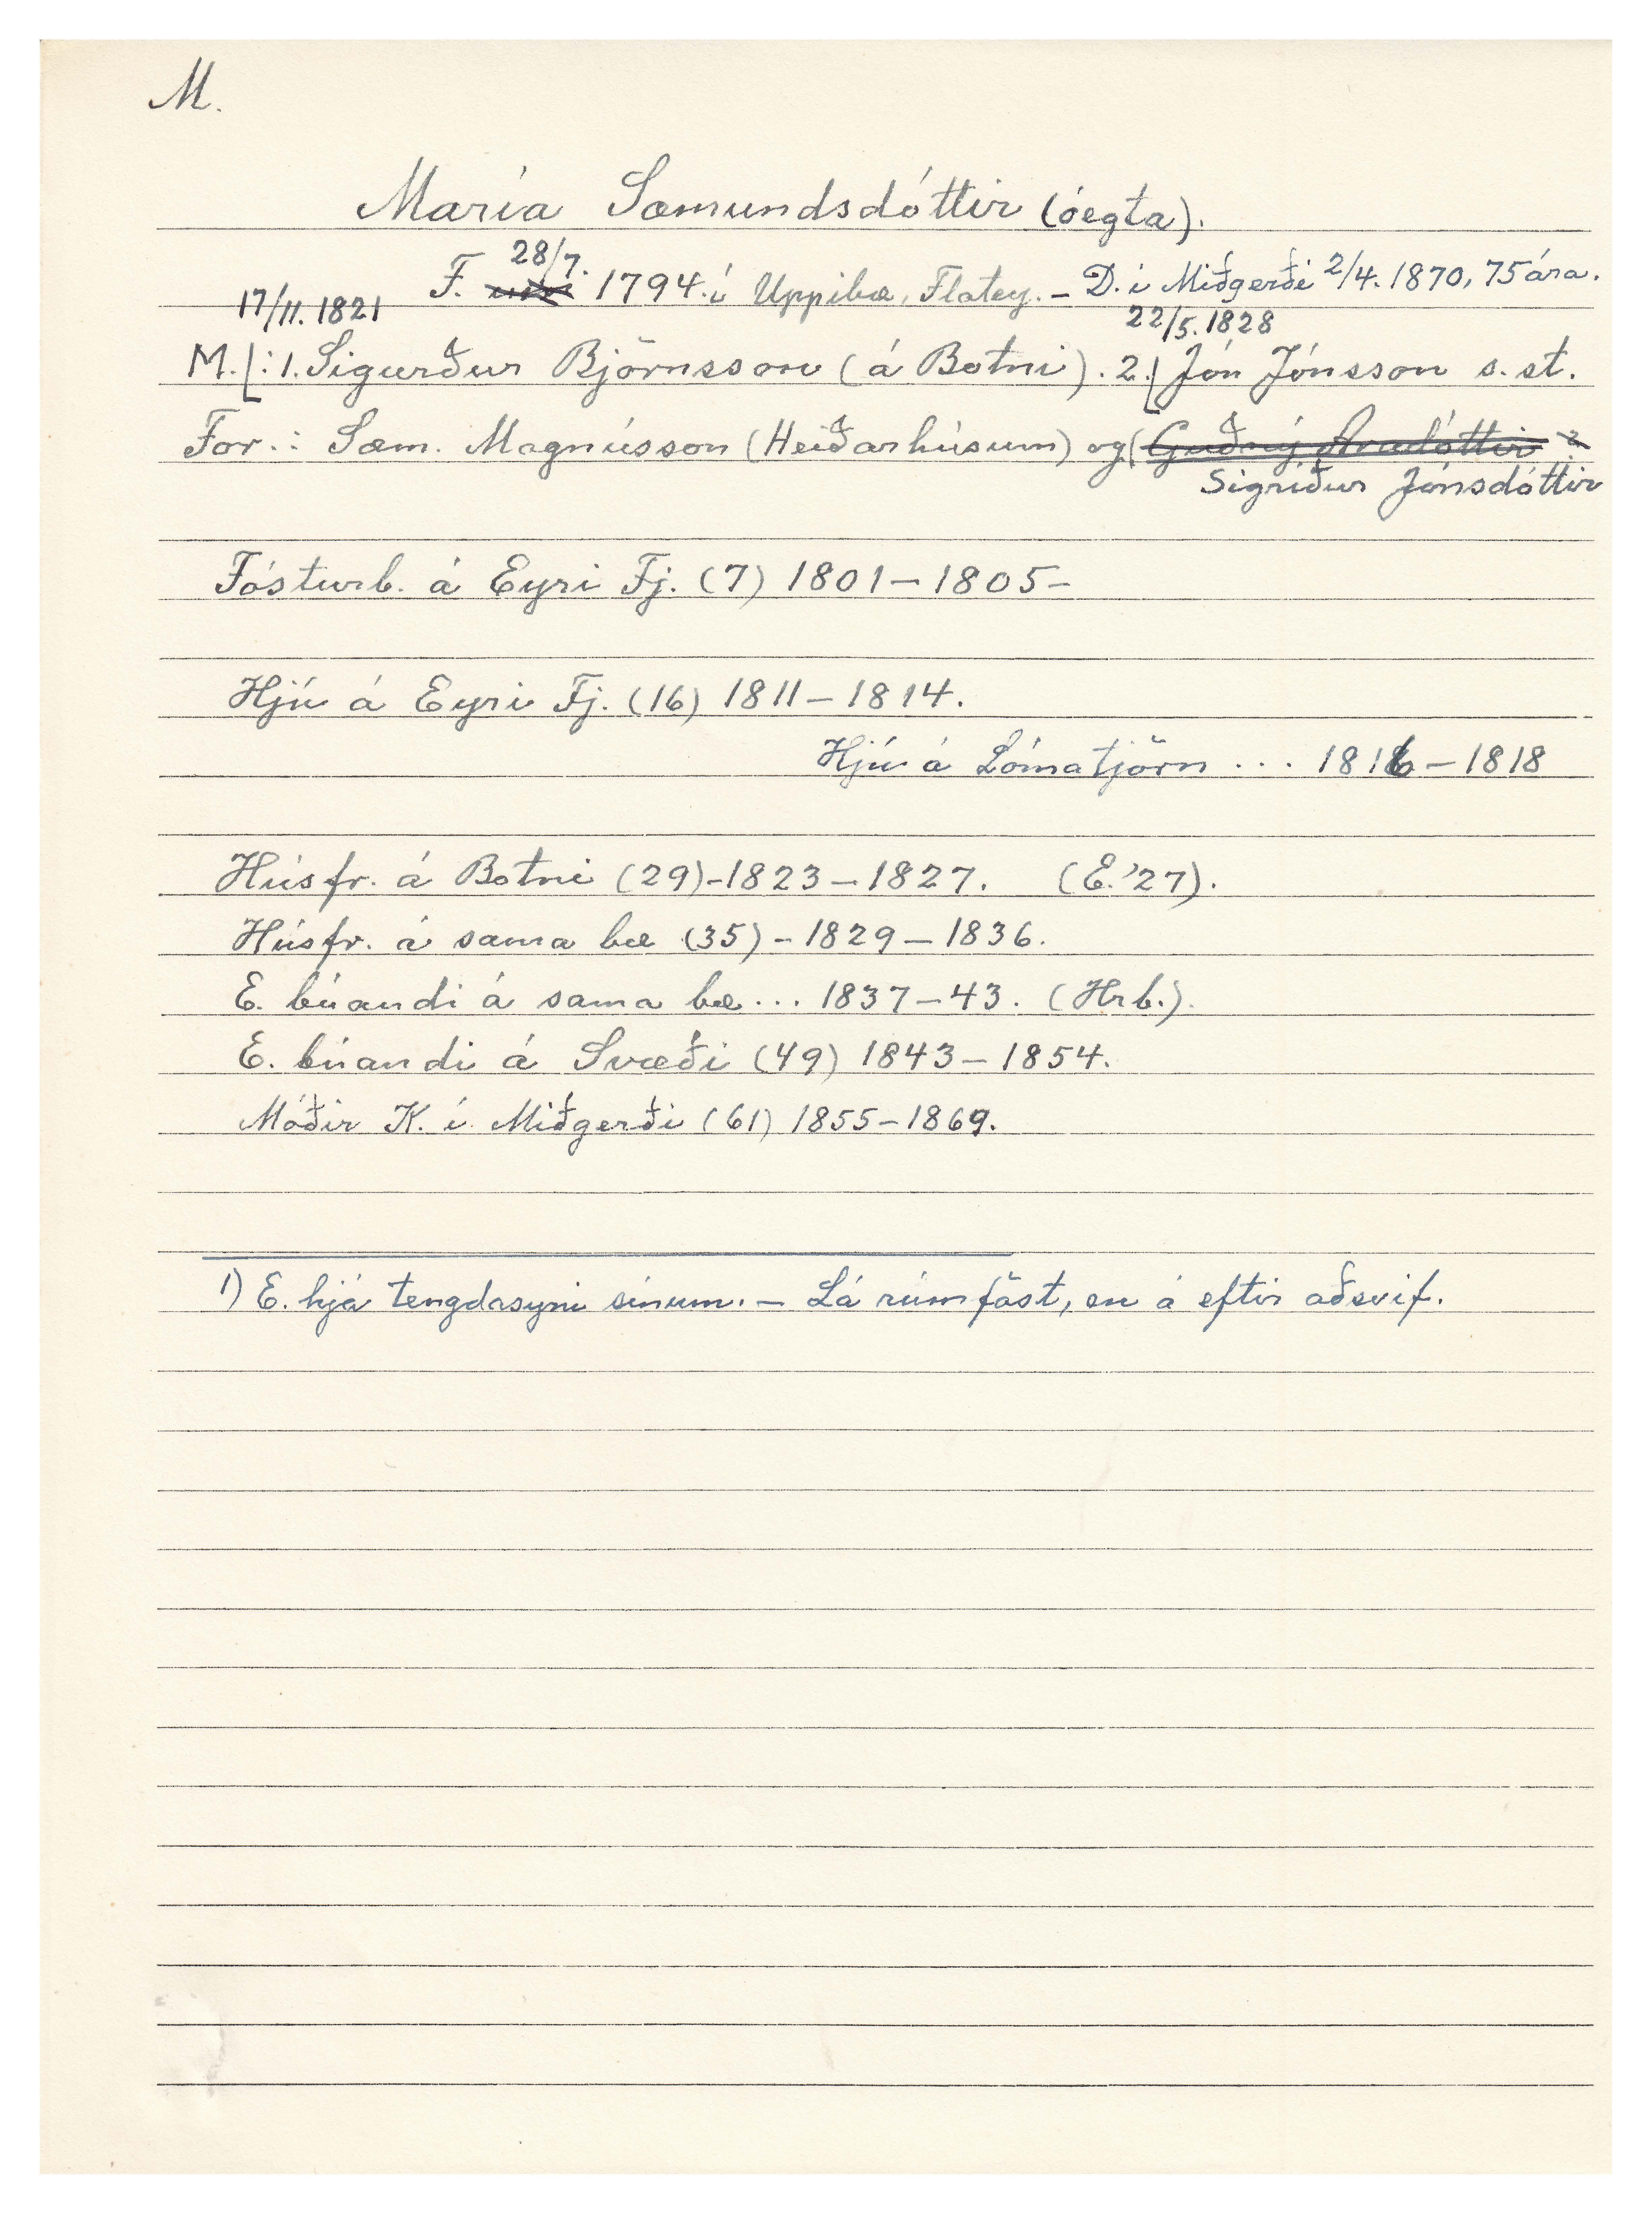 M.
María Sæmundsdóttir (óegta).
28/7.
F. 1794. í Uppibæ, Flatey. – D. í Miðgerði 2/4. 1870, 75 ára.
17/11. 1821 22/5. 1828
M. : 1. Sigurður Björnsson (á Botni). 2. Jón Jónsson s. st.
For.: Sæm. Magnússon (Heiðarhúsum) og (Guðný Aradóttir ?
Sigríður Jónsdóttir
Fósturb. á Eyri Fj. (7) 1801 – 1805 –
Hjú á Eyri Fj. (16) 1811 – 1814.
Hjú á Lómatjörn ... 1816 – 1818
Húsfr. á Botni (29) - 1823 – 1827. (E. '27).
Húsfr. á sama bæ (35) - 1829 – 1836.
E. búandi á sama bæ ... 1837 – 43. (Hrb.).
E. búandi á Svæði (49) 1843 – 1854.
Móðir K. í Miðgerði (61) 1855 – 1869.
1) E. hjá tengdasyni sínum. – Lá rúmföst, en á eftir aðsvif.